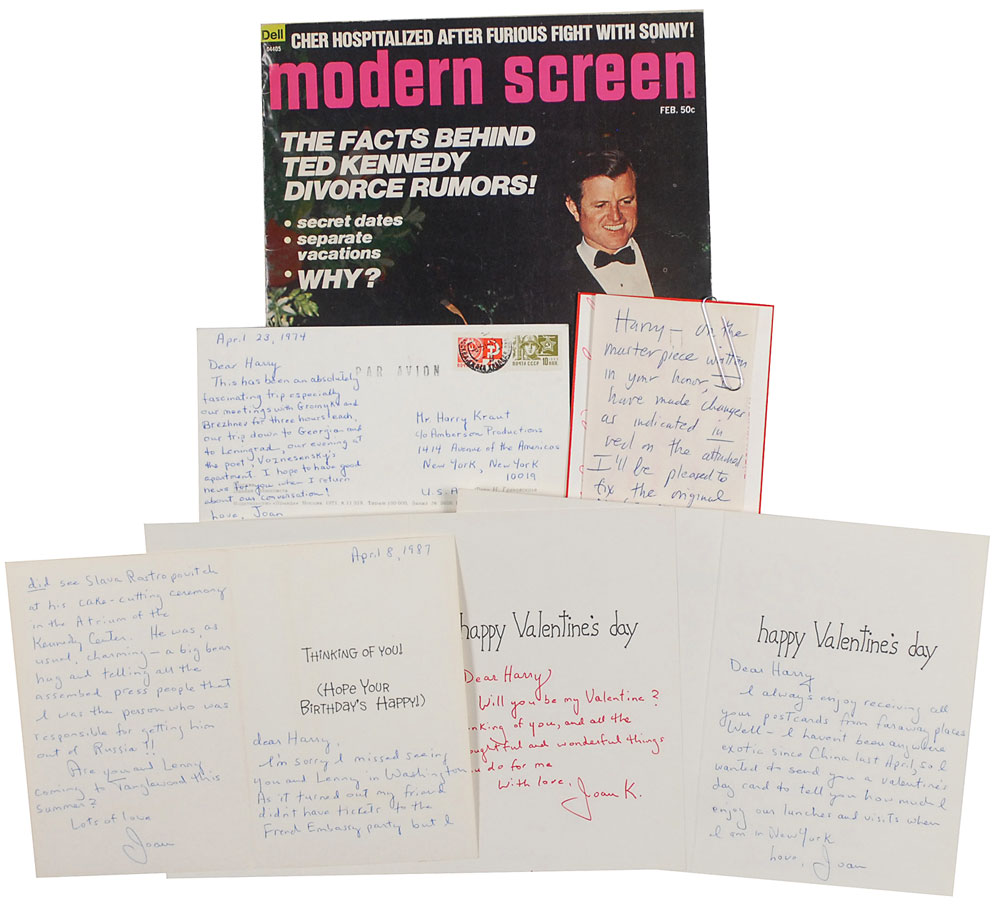 Dell
04405
CHER HOSPITALIZED AFTER FURIOUS FIGHT WITH SONNY!
modern screen
FEB. 50c
THE FACTS BEHIND
TED KENNEDY
DIVORCE RUMORS!
• secret dates
• separate
vacations
• WHY?
April 23, 1974
Dear Harry
This has been an absolutely
fascinating trip especially
our meetings with Gromyko and
Brezhnev for three hours each,
our trip down to Georgia and
to Leningrad, our evening at
the poet, Voznesensky's
apartment. I hope to have good
news for you when I return
about our conversation!
Love, Joan
PAR AVION
ПОЧТА СССР 10
Mr. Harry Kraut
c/o Amberson Productions
1414 Avenue of the Americas
New York, New York
10019
U.S.A
Harry – On the
masterpiece written
in your honor, I
have made changes
as indicated in
red on the attached
I'll be pleased to
fix the original
did see Slava Rostropovitch
at his cake-cutting ceremony
in the Atrium of the
Kennedy Center. He was, as
usual, charming – a big bear
hug and telling all the
assembled press people that
I was the person who was
responsible for getting him
out of Russia!!
Are you and Lenny
coming to Tanglewood this
summer?
Lots of love
Joan
April 8, 1987
THINKING OF YOU!
(HOPE YOUR
BIRTHDAY'S HAPPY!)
dear Harry,
I'm sorry I missed seeing
you and Lenny in Washington
As it turned out my friend
didn't have tickets to the
French Embassy party but I
happy Valentine's day
Dear Harry
Will you be my Valentine?
nking of you, and all the
oughtful and wonderful things
ou do for me
With love,
Joan K.
happy Valentine's day
Dear Harry
I always enjoy receiving all
your postcards from faraway places
Well – I haven't been anywhere
exotic since China last April, so I
wanted to send you a valentine's
day card to tell you how much I
enjoy our lunches and visits when
I am in New York
Love, Joan